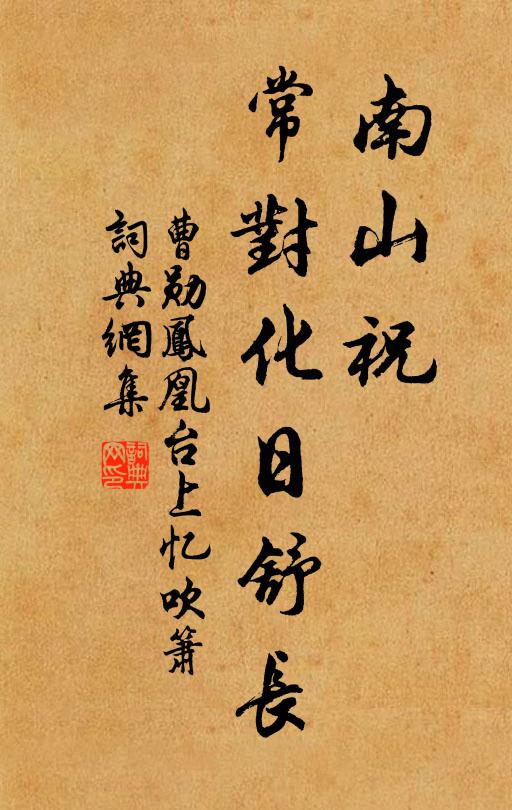 南山祝
常對化日舒長
曹勋鳳凰台上忆吹簫
詞典網集
詞典網印